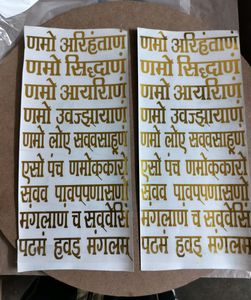 णमो अरिहंताणं
णमो सिद्धाणं
णमो आयरिणं
णमो उवज्झायाणं
णमो लोए सव्वसाहूणं
एसो पंच णमोक्कारो
सवव पावप्पणासणो
मगलाणं च सव्वेसिं
पढमं हवइ मगलम
णमो अरिहंताणं
णमो सिद्धाणं
णमो आयरिणं
णमो उवज्झायाणं
णमो लोए सव्वसाहूणं
एसो पंच णमोक्कारो
सवव पावप्पणासणो
मगलाणं च सव्वेसिं
पढमं हवइ मगलम